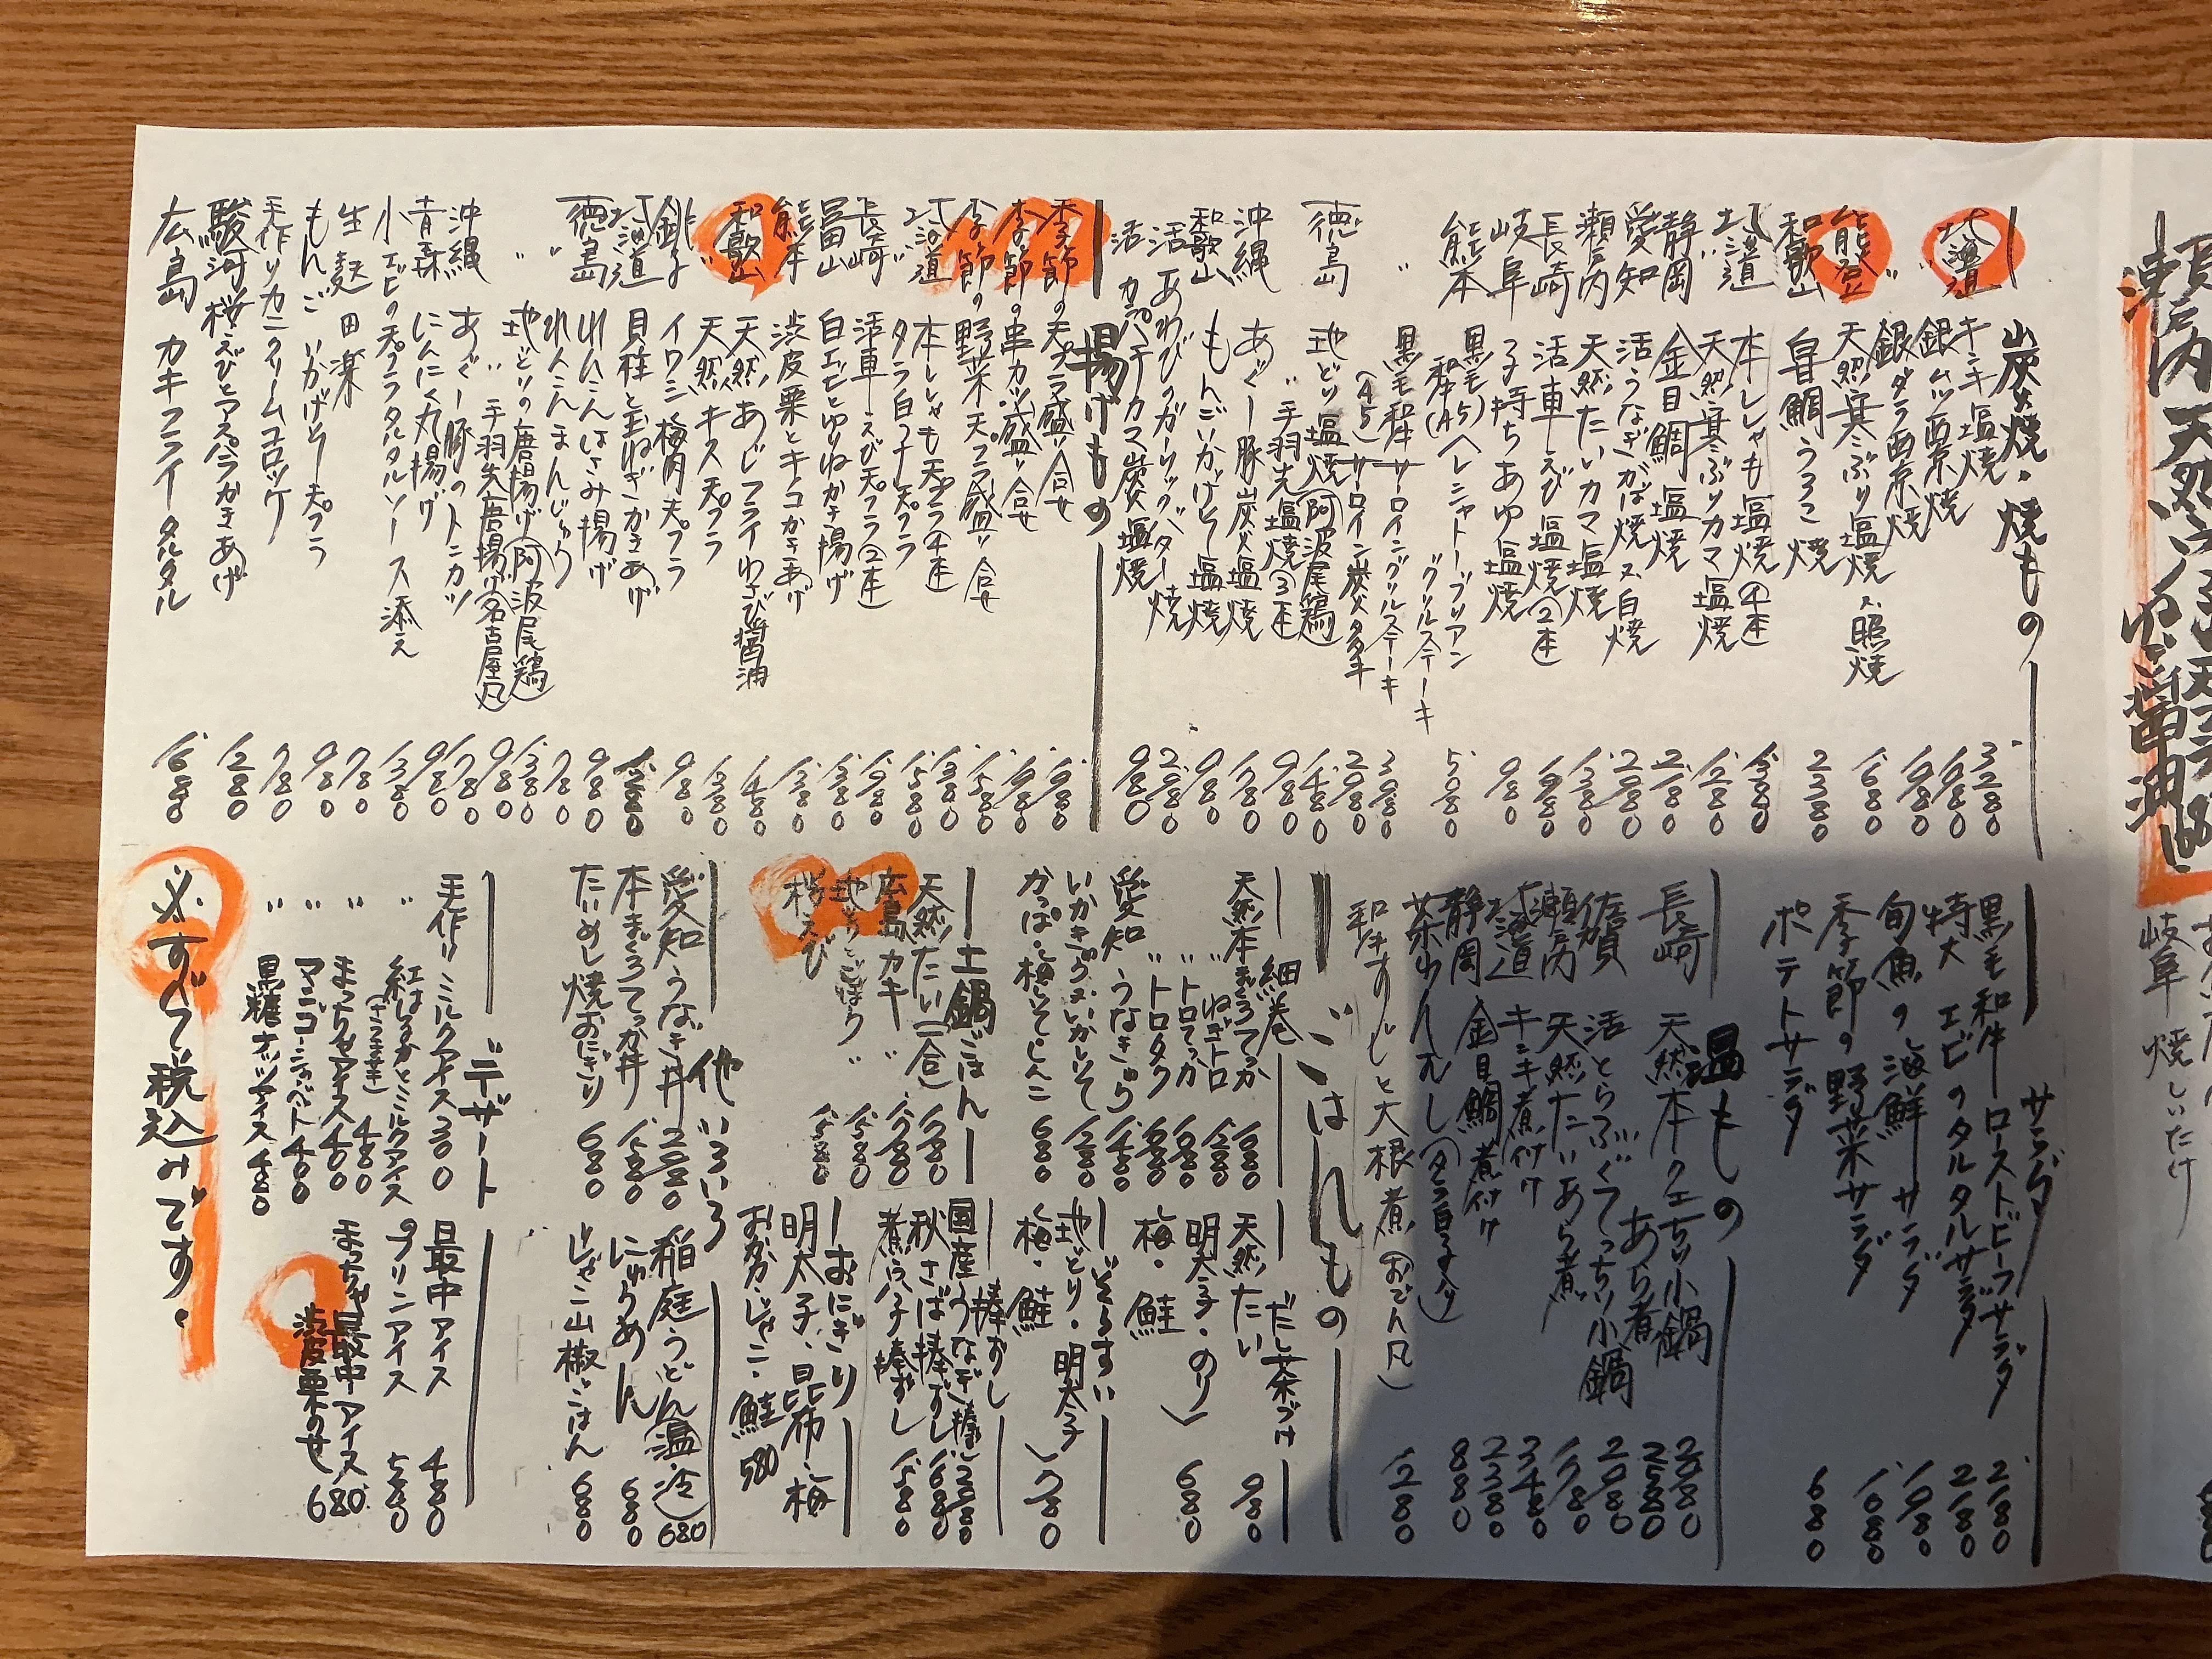 炭火焼・焼もの
北海道 キンキ塩焼 3280
〃 銀ムツ西京焼 1980
〃 銀ダラ西京焼 1980
能登 天然寒ぶり塩焼 又 照焼 1680
和歌山 甘鯛うろこ焼 2380
北海道 本ししゃも塩焼④本 1380
〃 天然寒ぶりカマ塩焼 1280
静岡 金目鯛塩焼 2180
愛知 活うなぎかば焼 又 白焼 2980
瀬戸内 天然たいカマ塩焼 1380
長崎 活車えび塩焼②本 1980
岐阜 子持ちあゆ塩焼 980
熊本 黒毛和牛(A5)ヘレシャトーブリアングリルステーキ 5080
〃 黒毛和牛サーロイングリルステーキ 3980
(A5)サーロイン炭火タタキ 2980
徳島 地どり塩焼(阿波尾鶏) 1480
〃 手羽先塩焼③本 980
沖縄 あぐー豚炭火塩焼 1780
和歌山 もんごいかげそ塩焼 980
活あわびのガーリックバター焼 2980
活カンパチカマ炭火塩焼 980
揚げもの
季節の天プラ盛り合せ 1980
季節の串カツ盛り合せ 1980
季節の野菜天プラ盛り合せ 1580
北海道 本ししゃも天プラ④本 1380
〃 タラ白子天プラ 1580
長崎 活車えび天プラ②本 1980
富山 白エビとゆりねかき揚げ 1380
熊本 渋皮栗とキノコかきあげ 1380
和歌山 天然あじフライわさび醤油 1480
〃 天然キス天プラ 1380
銚子 イワシ梅肉天プラ 980
北海道 貝柱と玉ねぎかきあげ 1380
徳島 れんこんはさみ揚げ 980
〃 れんこんまんじゅう 780
〃 地どりの唐揚げ(阿波尾鶏) 1380
〃 手羽先唐揚げ(名古屋風) 980
沖縄 あぐー豚のトンカツ 1780
青森 にんにく丸揚げ 980
小エビの天プラタルタルソース添え 1380
生麩田楽 780
もんごいかげそ天プラ 980
手作りカニクリームコロッケ 780
駿河桜えびとアスパラかきあげ 1280
広島 カキフライタルタル 1680
サラダ
黒毛和牛ローストビーフサラダ 2180
特大エビのタルタルサラダ 2180
旬魚の海鮮サラダ 1980
季節の野菜サラダ 1080
ポテトサラダ 680
温もの
長崎 天然本クエちり小鍋 2980
あら煮 2580
佐賀 活とらふぐてっちり小鍋 2080
瀬戸内 天然たいあら煮 1780
北海道 キンキ煮付け 3480
静岡 金目鯛煮付け 2380
茶わんむし(タラ白子入り) 880
和牛すじと大根煮(おでん風) 1280
ごはんもの
細巻
天然本まぐろてっか 1680
〃 ねぎトロ 1280
〃 トロてっか 1680
〃 トロタク 1680
愛知 うなきゅう 1480
いかきゅう・いかしそ 1280
かっぱ・梅しそ・しんこ 680
だし茶づけ
天然たい 980
明太子・のり
梅・鮭 680
ぞうすい
地どり・明太子
梅・鮭 780
土鍋ごはん
天然たい(一合) 1780
広島カキ 〃 1780
地とりごぼう 〃 1580
桜えび 1580
棒ずし
国産うなぎ棒 2980
秋さば棒ずし 1680
煮穴子棒ずし 1580
おにぎり
明太子・昆布・梅
おかか・じゃこ・鮭 580
他いろいろ
愛知うなぎ丼 2980
本まぐろてっか丼 1580
たいめし焼おにぎり 680
稲庭うどん(温・冷) 680
にゅうめん 680
じゃこ山椒ごはん 680
デザート
手作りミルクアイス 300
〃 紅はるかとミルクアイス(さつま芋) 480
〃 まっちゃアイス 400
〃 マンゴーシャーベット 400
〃 黒糖ナッツアイス 480
最中アイス 480
プリンアイス 580
まっちゃ最中アイス 680
渋皮栗のせ 680
※すべて税込みです。
瀬戸内天然
岐阜 焼しいたけ